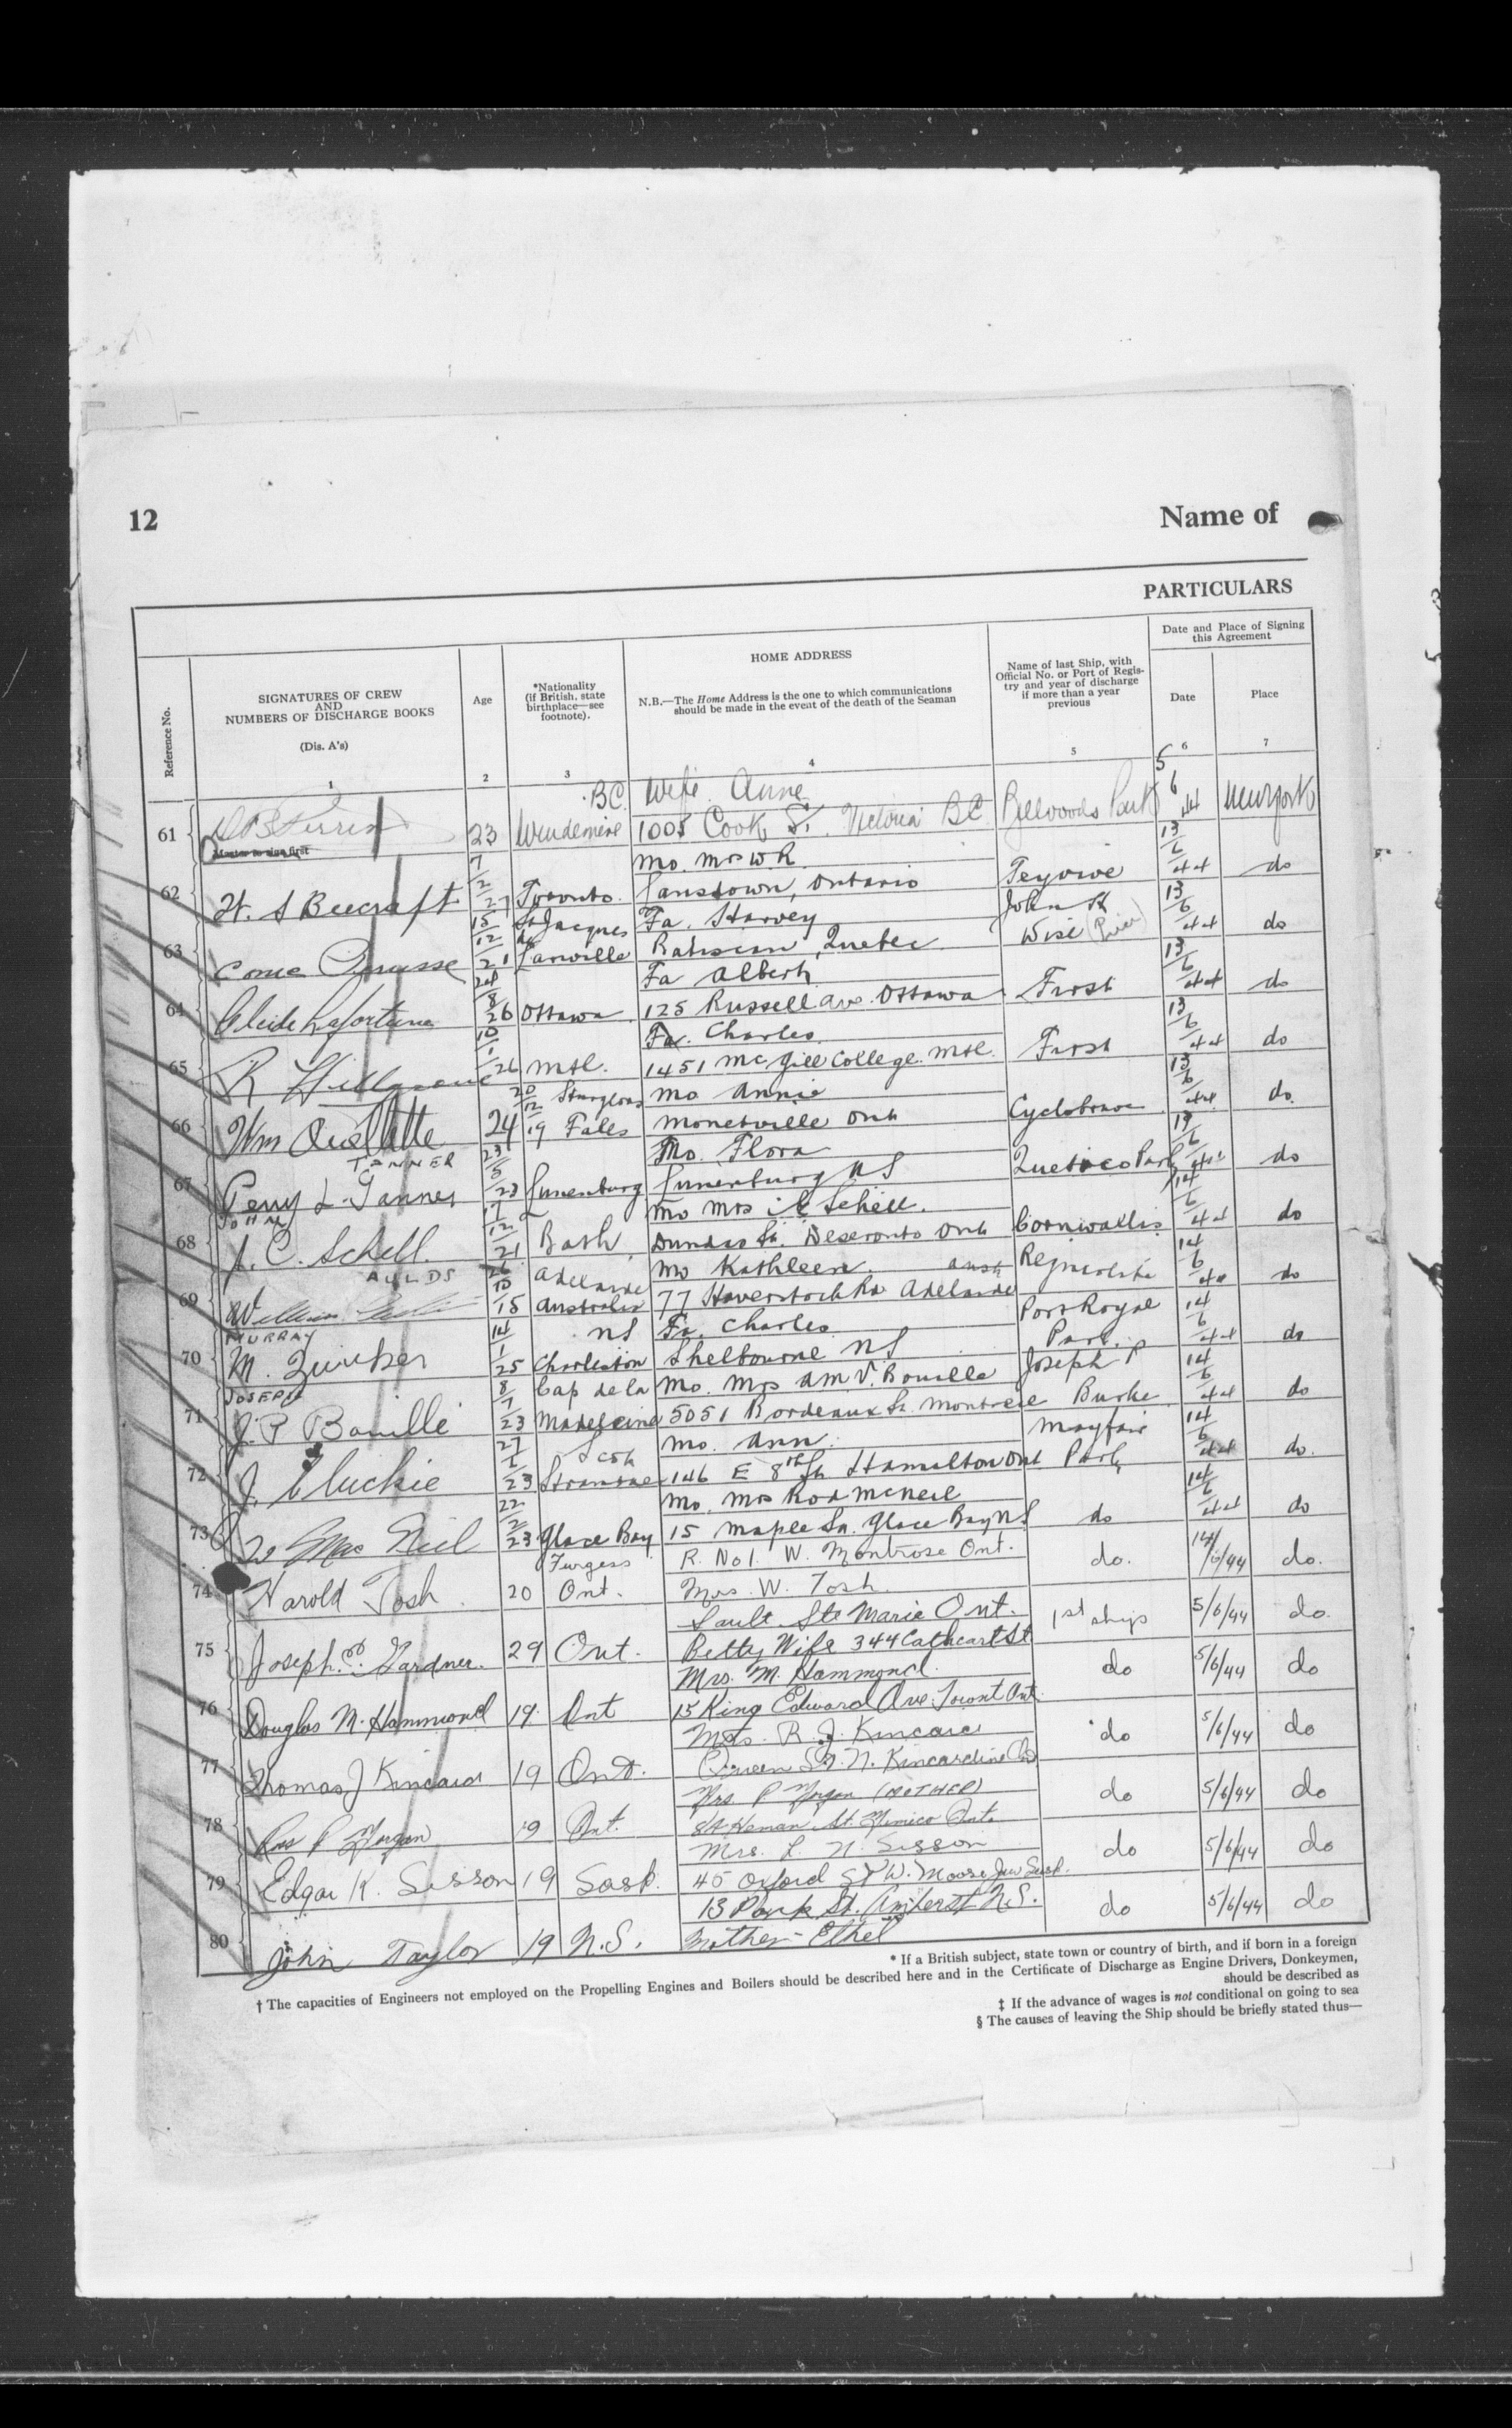 12
Name of
PARTICULARS
Reference No.
SIGNATURES OF CREW
AND
NUMBERS OF DISCHARGE BOOKS
(Dis. A's)
1
Age
2
*Nationality
(if British, state
birthplace—see
footnote).
3
HOME ADDRESS
N.B.—The Home Address is the one to which communications
should be made in the event of the death of the Seaman
4
Name of last Ship, with
Official No. or Port of Regis-
try and year of discharge
if more than a year
previous
5
Date and Place of Signing
this Agreement
Date
6
Place
7
BC. Wife Anne 5/6/44
61 23 1005 Cook St. Victoria BC Bellwoods Park New York
Master to sign first
7/2/27 Mo. Mrs W.R. 13/6/44
62 Toronto. Lansdown, Ontario do
15/12/21 St Jacques Fa. Harvey John H 13/6/44
63 Quebec Wise do
24/8/26 Fa Albert 13/6/44
64 Ottawa 125 Russell Ave. Ottawa Frost do
10/1/26 Fa. Charles 13/6/44
65 R Mtl. 1451 McGill College. Mtl. Frost do
20/12/19 Sturgeons Mo Annie 13/6/44
66 Wm Ouellette 24 Falls Monetville Ont do
TANNER 23/5/23 Mo. Flora 13/6/44
67 Perry L. Tanner Lunenburg Lunenburg NS Quetico Park do
JOHN 17/12/21 Mo Mrs Schell. 14/6/44
68 J. C. Schell. Bath Dundas St. Deseronto Ont Cornwallis do
AULDS 26/10/15 Adelaide Mo Kathleen. Aust 14/6/44
69 William Australia 77 Haverstock Rd Adelaide do
MURRAY 14/1/25 NS Fa. Charles Port Royal 14/6/44
70 M. Zwicker Charleston Shelbourne NS Park. do
JOSEPH 8/7/23 Cap de la Mo. Mrs AM V. Bouille Joseph P 14/6/44
71 J. P Bouille Madeleine 5051 Bordeaux St. Montreal Burke do
27/6/23 Scot Mo. Ann. Mayfair 14/6/44
72 J. Cluckie Stranraer 146 E 8th St Hamilton Ont Park do.
22/2/23 Mo. Mrs Rod McNeil 14/6/44
73 MacNeil Glace Bay 15 Maple St. Glace Bay NS do do
Furgess R. No 1. W. Montrose Ont.
74 Harold Tosh 20 Ont. Mrs. W. Tosh do. 14/6/44 do.
Sault Ste Marie Ont.
75 Joseph P. Gardner. 29 Ont. Betty Wife 344 Cathcart St 1st ship 5/6/44 do.
Mrs. M. Hammond.
76 Douglas M. Hammond 19 Ont 15 King Edward Ave. Toront Ont. do 5/6/44 do
Mrs. R. J. Kincaid
77 Thomas J Kincaid 19 Ont. Queen St. N. Kincardine Ont do 5/6/44 do
Mrs P Morgan (MOTHER)
78 Ross P Morgan 19 Ont. St. Mimico Ont. do 5/6/44 do
Mrs. L. N. Sisson
79 Edgar K. Sisson 19 Sask. 45 Oxford St W. Moose Jaw Sask. do 5/6/44 do
13 Park St. Amherst N.S.
80 John Taylor 19 N.S. Mother - Ethel do 5/6/44 do
* If a British subject, state town or country of birth, and if born in a foreign
† The capacities of Engineers not employed on the Propelling Engines and Boilers should be described here and in the Certificate of Discharge as Engine Drivers, Donkeymen,
should be described as
‡ If the advance of wages is not conditional on going to sea
§ The causes of leaving the Ship should be briefly stated thus—